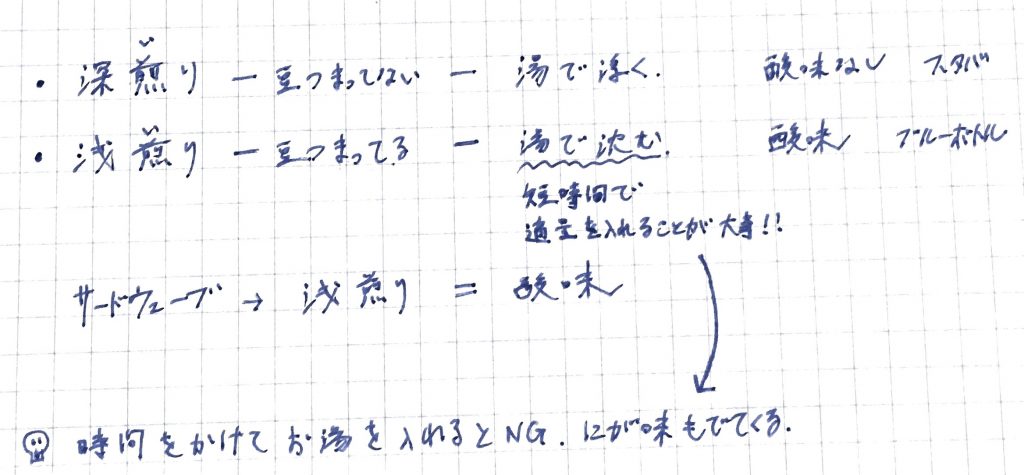 ・深煎り ー 豆つまってない ー 湯で浮く. 酸味なし スタバ
・浅煎り ー 豆つまってる ー 湯で沈む. 酸味 ブルーボトル
短時間で
適量を入れることが大事!!
サードウェーブ → 浅煎り = 酸味
時間をかけてお湯を入れるとNG. にが味もでてくる.